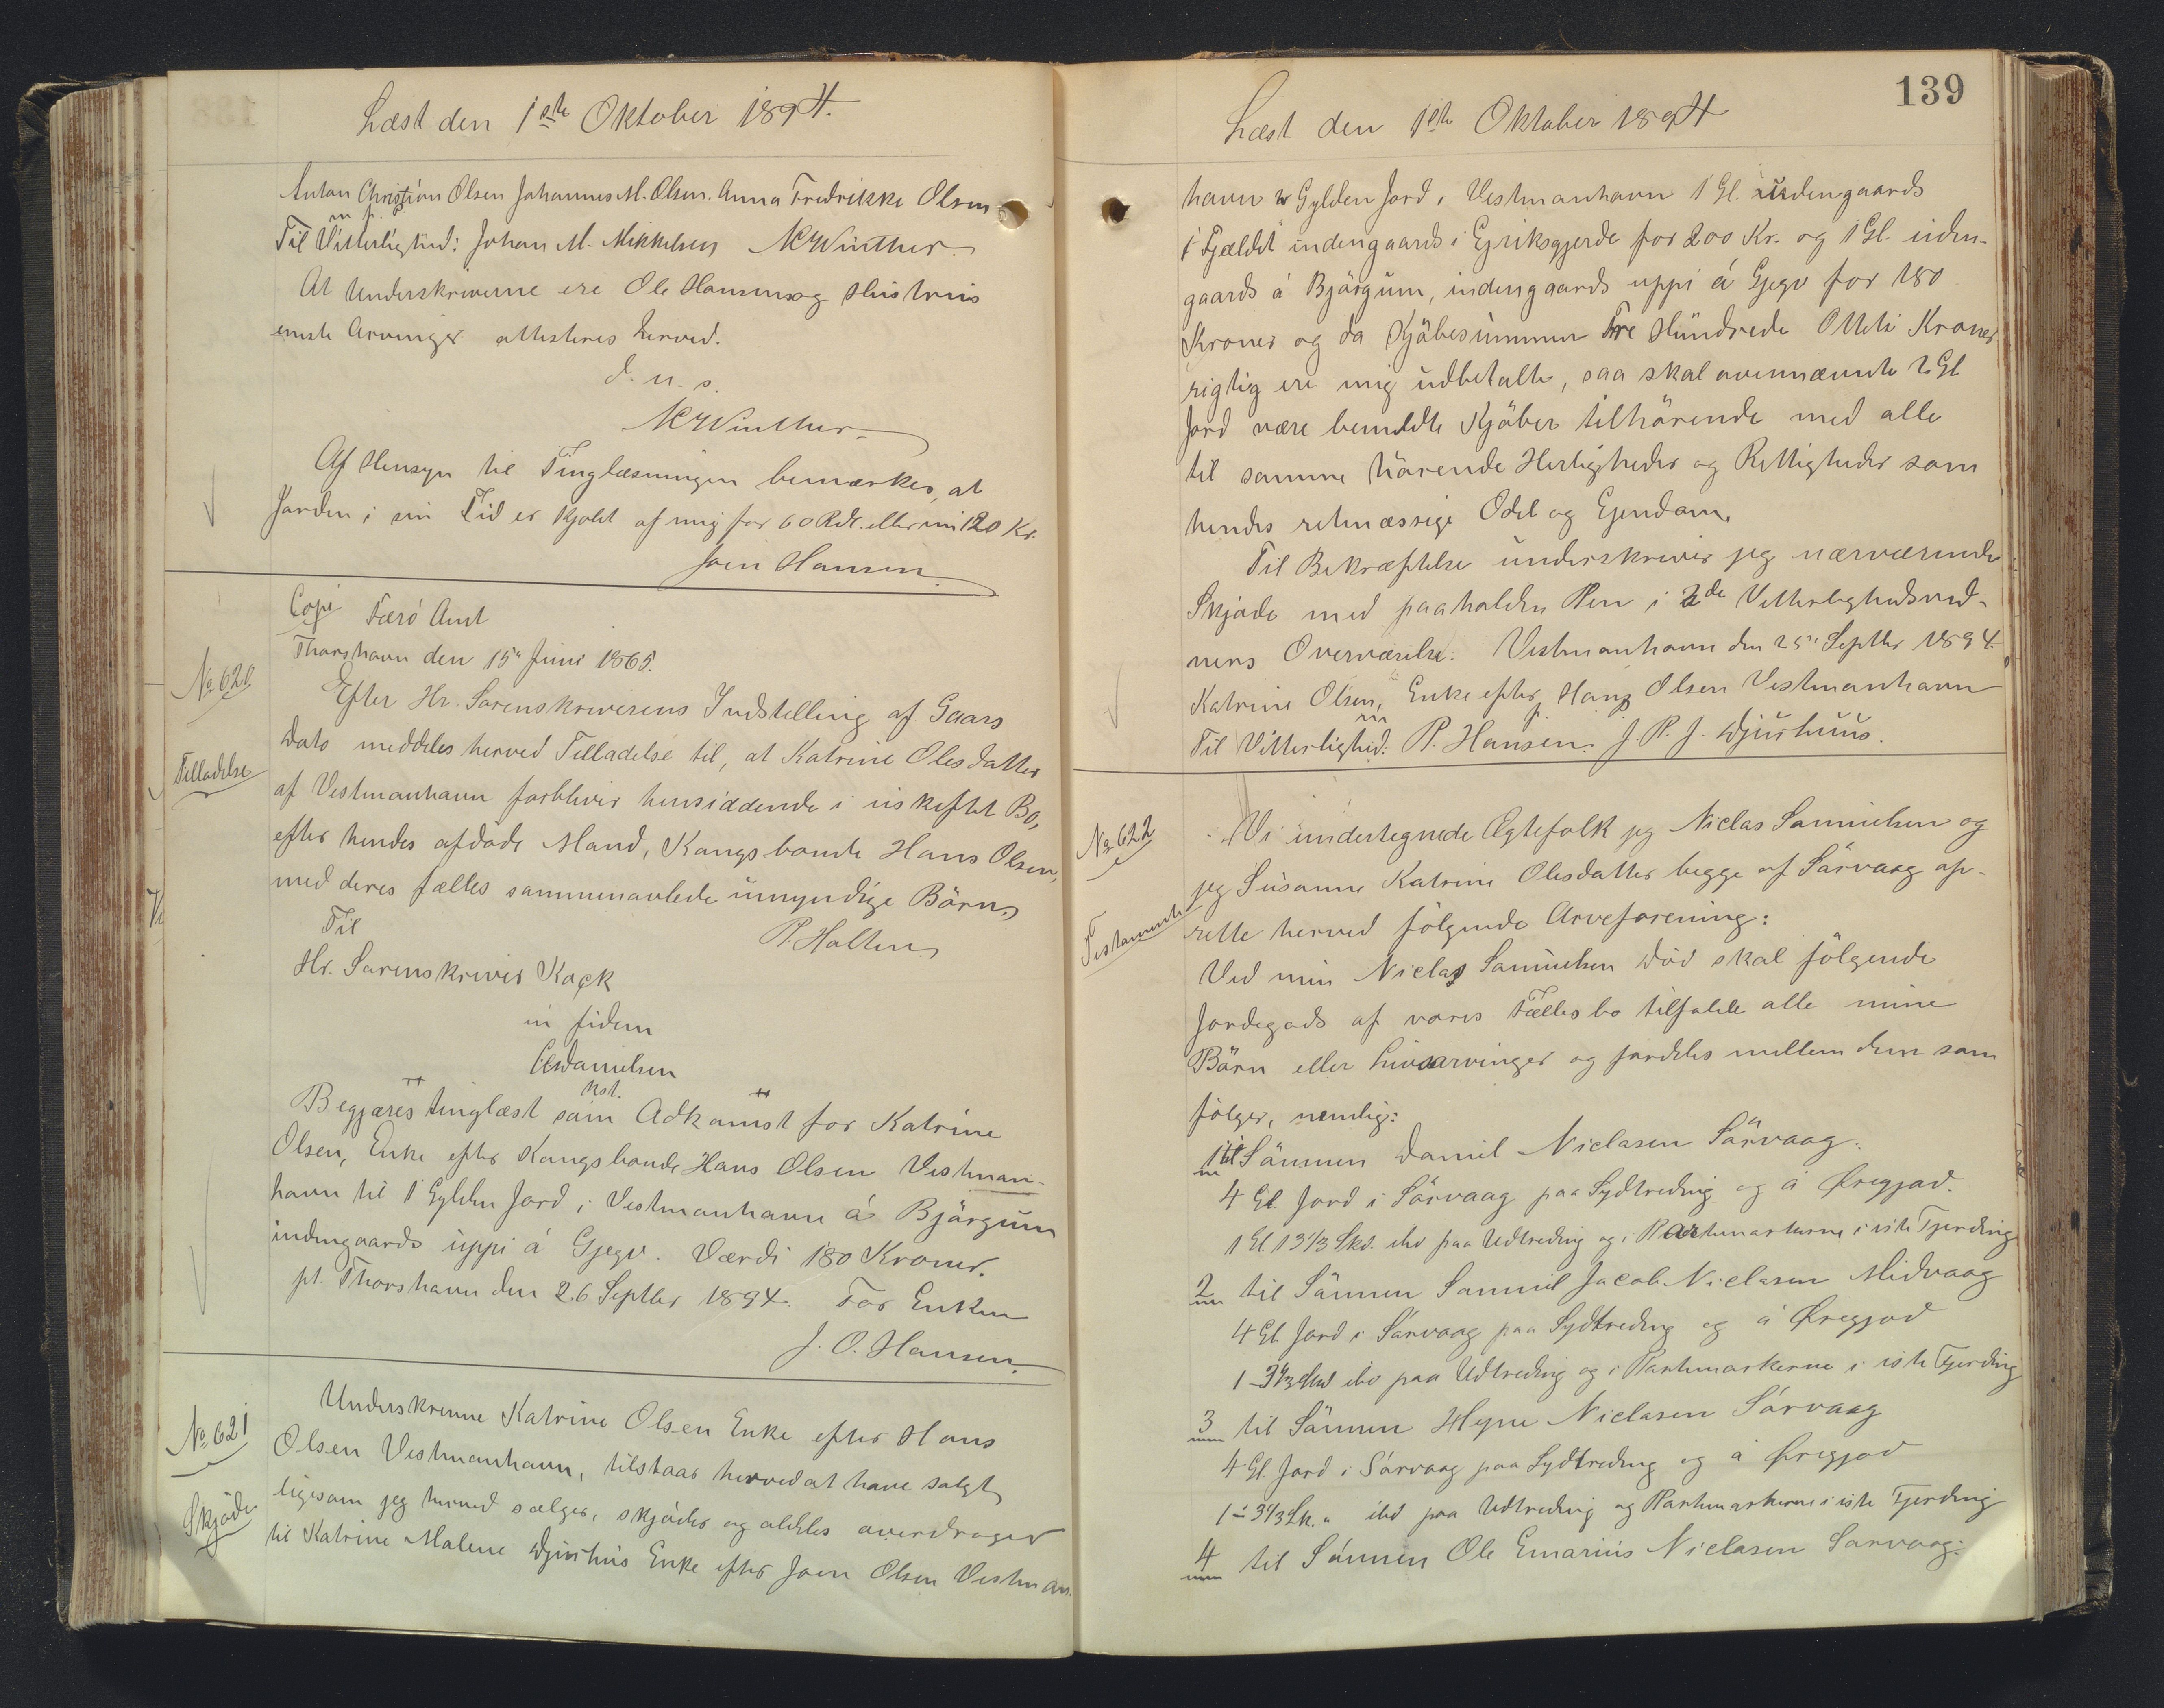 Læst den 1ste Oktober 1894.
Anton Christian Olsen Johannes M. Olsen. Anna Fredrikke Olsen
m. p.
Til Vitterlighed: Johan M. Mikkelsen NCWinther.
At Underskriverne ere Ole Hansens og Hustrus
eneste Arvinger attesteres herved.
d. u. s.
NCWinther
Af Hensyn til Tinglæsningen bemærkes, at
Jorden i sin Tid er kjøbt af mig for 60 Rdl. eller nu 120 Kr.
Joen Hansen.
Copi Færö Amt
Thorshavn den 15de Juni 1865.
No 620
Tilladelse
Efter Hr. Sorenskriverens Indstilling af Gaars
Dato meddeles herved Tilladelse til, at Katrine Olesdatter
af Vestmanhavn forbliver hensiddende i uskiftet Bo,
efter hendes afdøde Mand, Kongsbonde Hans Olsen,
med deres fælles sammenavlede umyndige Börn.
Til P. Holten.
Hr. Sorenskriver Kock
in fidem
CDanielsen
kst.
Begjæres tinglæst som Adkomst for Katrine
Olsen, Enke efter Kongsbonde Hans Olsen Vestman-
havn til 1 Gylden Jord i Vestmanhavn á Bjørgum
indengaards uppi á Gjegv. Værdi 180 Kroner.
pt. Thorshavn den 26 Septbr 1894. For Enken
J. O. Hansen.
No 621
Skjøde
Underskrevne Katrine Olsen Enke efter Hans
Olsen Vestmanhavn, tilstaar herved at have solgt
ligesom jeg herved sælger, skjøder og aldeles overdrager
til Katrine Malene Djurhus Enke efter Joen Olsen Vestman-
139
Læst den 1ste Oktober 1894
havn 2 Gylden Jord i Vestmanhavn 1 Gl. udengaards
i Fjældet indengaards i Ejriksgjerde for 200 Kr. og 1 Gl. uden-
gaards á Bjørgum, indengaards uppi á Gjegv for 180
Kroner og da Kjøbesummen Tre Hundrede Otteti Kroner
rigtig ere mig udbetalte, saa skal ovennævnte 2 Gl
Jord være bemeldte Kjøber tilhørende med alle
til samme hørende Herligheder og Rettigheder som
hendes retmæssige Odel og Ejendom.
Til Bekræftelse underskriver jeg nærværende
Skjøde med paaholden Pen i 2de Vitterlighedsvid-
ners Overværelse. Vestmanhavn den 25de Septbr 1894.
Katrine Olsen, Enke efter Hans Olsen Vestmanhavn
m. p.
Til Vitterlighed: P. Hansen. J. P. J. Djurhuus.
No 622
Testamente
Vi undertegnede Ægtefolk jeg Niclas Samuelsen og
jeg Susanne Katrine Olesdatter begge af Sörvaag op-
rette herved følgende Arveforening:
Ved min Niclas Samuelsen Død skal følgende
Jordegods af vores Fællesbo tilfalde alle mine
Börn eller Livsarvinger og fordeles mellem dem som
følger, nemlig:
1 til Sönnen Daniel Niclasen Sörvaag:
4 Gl. Jord i Sörvaag paa Sydtreding og á Øregjod.
1 Gl. 13 1/3 Skd. ibd paa Udtreding og i Partmarkerne i iste Fjerding
2 til Sönnen Samuel Jacob Niclasen Midvaag
4 Gl. Jord i Sörvaag paa Sydtreding og á Øregjod
1 - 3 1/3 Skd ibd paa Udtreding og i Partmarkerne i iste Fjerding
3 til Sönnen Hejne Niclasen Sörvaag
4 Gl. Jord i Sörvaag paa Sydtreding og á Øregjod
1 - 3 1/3 Sk. " ibd paa Udtreding og Partmarkerne i iste Fjerding
4 til Sönnen Ole Emarius Niclasen Sørvaag: